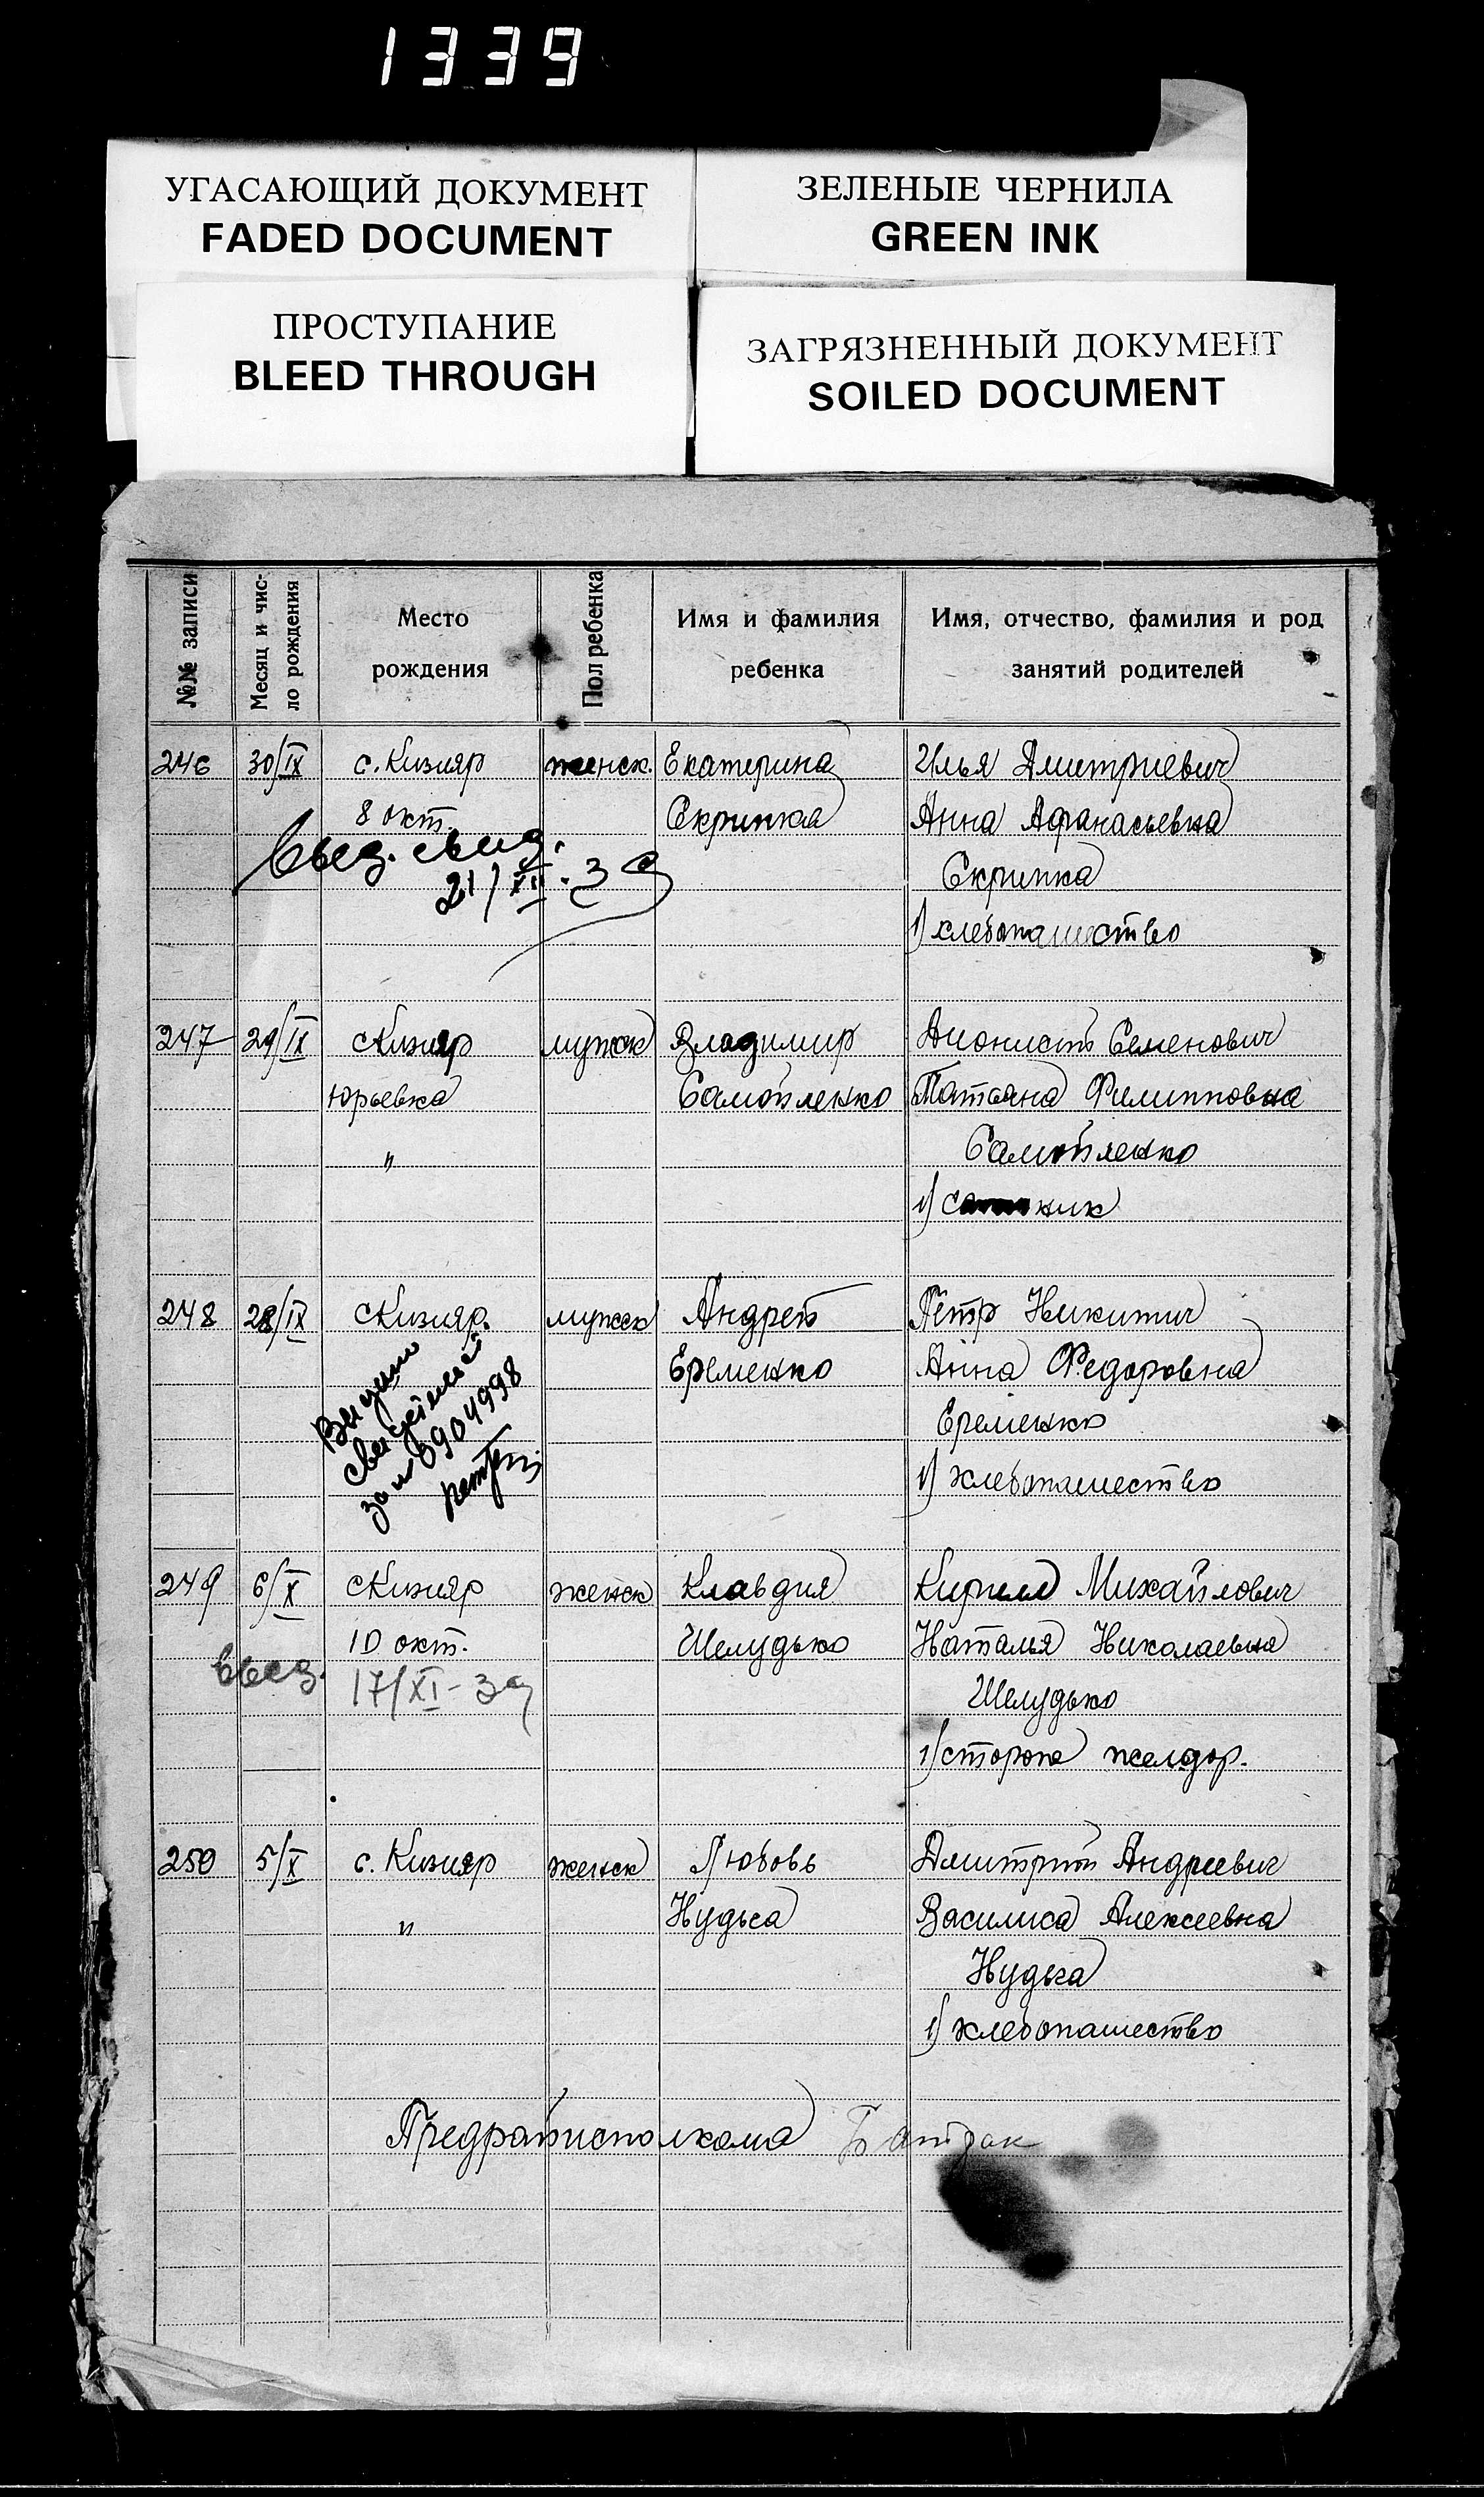 1339
УГАСАЮЩИЙ ДОКУМЕНТ
FADED DOCUMENT
ЗЕЛЕНЫЕ ЧЕРНИЛА
GREEN INK
ПРОСТУПАНИЕ
BLEED THROUGH
ЗАГРЯЗНЕННЫЙ ДОКУМЕНТ
SOILED DOCUMENT
№№ записи
Месяц и чис-
ло рождения
Место
рождения
Пол ребенка
Имя и фамилия
ребенка
Имя, отчество, фамилия и род
занятий родителей
246 30/IX с. Кизияр женск. Екатерина Илья Дмитриевич
8 окт. Скрипка Анна Афанасьевна
выд. свид. Скрипка
21/XII-39
1) хлебопашество
247 29/IX с Кизияр мужск Владимир Дионисий Семенович
Юрьевка Самойленко Татьяна Филипповна
" Самойленко
1)
248 28/IX с Кизияр. мужск Андрей Петр Никитич
Еременко Анна Федоровна
Еременко
1) хлебопашество
Выдано
за № 0904998
249 6/X с Кизияр женск Клавдия Кирилл Михайлович
10 окт. Шелудько Наталья Николаевна
выд. 17/XI-39 Шелудько
1) сторож желдор.
250 5/X с. Кизияр женск Любовь Дмитрий Андреевич
" Нудьга Василиса Алексеевна
Нудьга
1) хлебопашество
Предрайисполкома Батрак